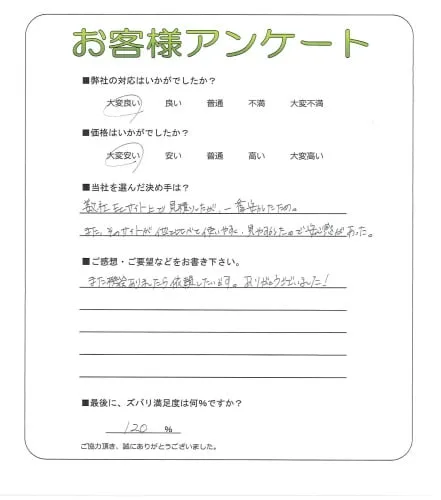 お客様アンケート
■弊社の対応はいかがでしたか?
大変良い 良い 普通 不満 大変不満
■価格はいかがでしたか?
大変安い 安い 普通 高い 大変高い
■当社を選んだ決め手は?
数社ECサイト上で見積りしたが、一番安かしたため。
また、そのサイトが 使いやすく、見やすかった。ので安心感があった。
■ご感想・ご要望などをお書き下さい。
また機会ありましたら依頼したいます。ありがとうございました!
■最後に、ズバリ満足度は何%ですか?
120 %
ご協力頂き、誠にありがとうございました。